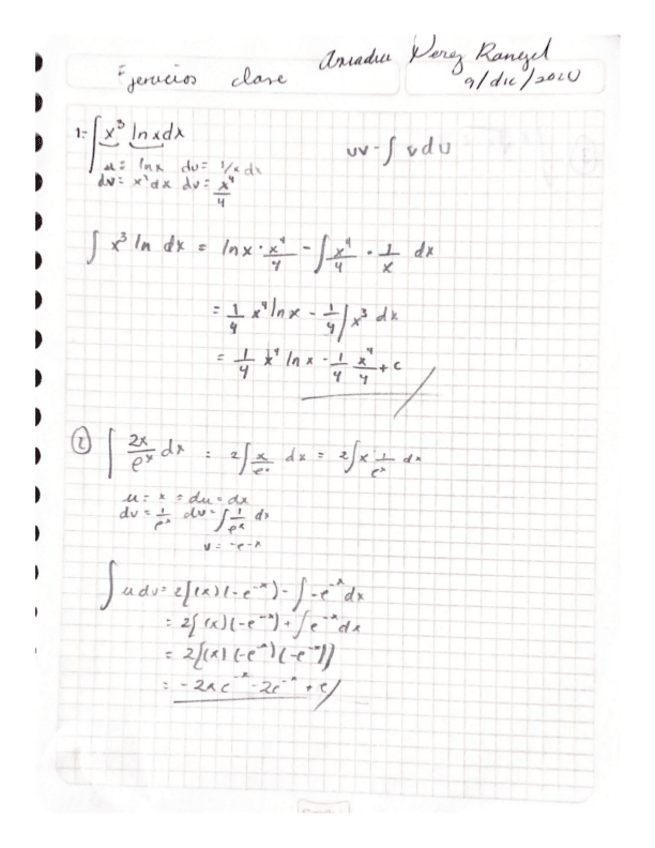 Perez Rangel
Ejercicios clase 9/dic/2020
1- ∫ x³ ln x dx uv - ∫ v du
u = ln x du = 1/x dx
dv = x³ dx dv = x⁴/4
∫ x³ ln dx = ln x · x⁴/4 - ∫ x⁴/4 · 1/x dx
= 1/4 x⁴ ln x - 1/4 ∫ x³ dx
= 1/4 x⁴ ln x - 1/4 x⁴/4 + c
② ∫ 2x/eˣ dx = 2∫ x/eˣ dx = 2∫ x 1/eˣ dx
u = x = du = dx
dv = 1/eˣ dv = ∫ 1/eˣ dx
v = -e-x
∫ u dv = 2[(x)(-e⁻ˣ) - ∫ -e⁻ˣ dx
= 2∫ (x)(-e⁻ˣ) + ∫ e⁻ˣ dx
= 2[(x)(-e⁻ˣ)(-e⁻ˣ)]
= -2xe⁻ˣ - 2e⁻ˣ + c